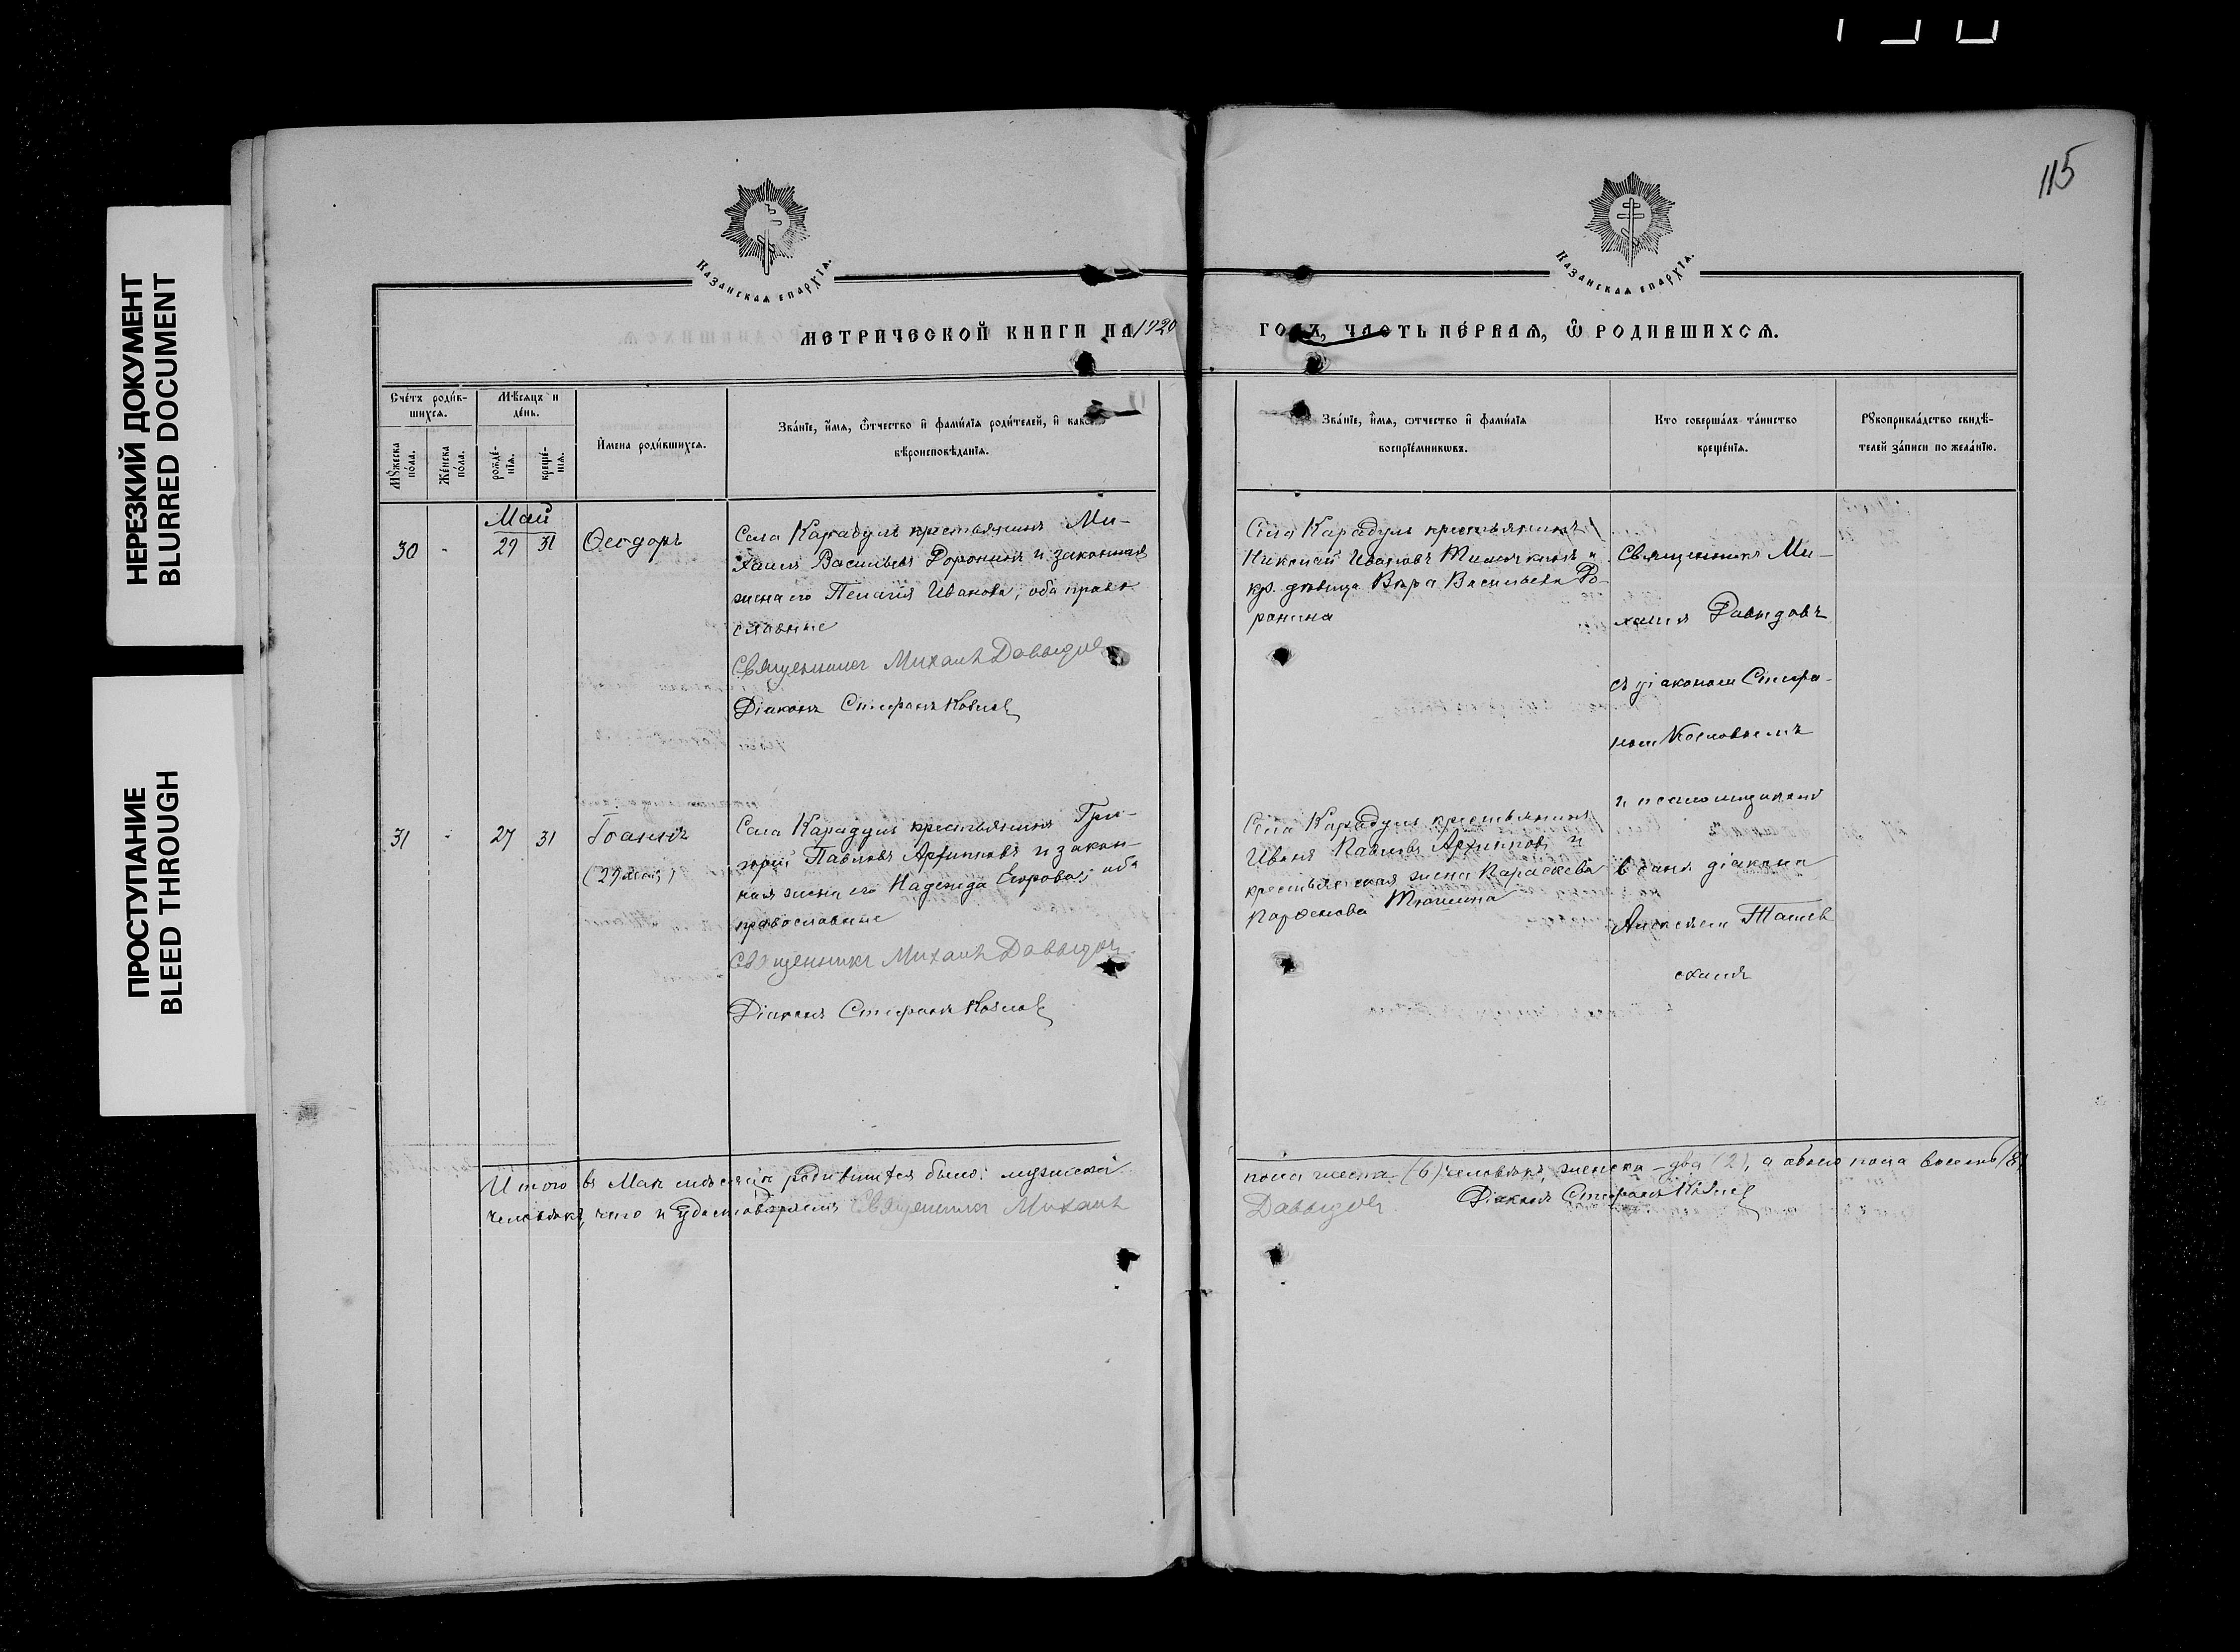 115
НЕРЕЗКИЙ ДОКУМЕНТ
BLURRED DOCUMENT
ПРОСТУПАНИЕ
BLEED THROUGH
Казанскаѧ епархїѧ.
Казанскаѧ епархїѧ.
МЕТРИЧЕСКОЙ КНИГИ НА 1920
ГОДЪ, ЧАСТЬ ПЕ́РВАѦ, Ѿ РОДИВШИХСѦ.
Сче́тъ роди́в-
шихсѧ.
Мꙋ́жеска
по́ла.
Же́нска
по́ла.
Мѣ́сѧцъ и
де́нь.
рожде́-
нїѧ.
креще́-
нїѧ.
И҆мена роди́вшихсѧ.
Зва́нїе, и҆́мѧ, ѻ҆́тчество и҆ фами́лїѧ роди́телей, и҆ како
вѣроисповѣ́данїѧ.
Зва́нїе, и҆́мѧ, ѻ҆тчество и҆ фами́лїѧ
воспрїе́мникѡвъ.
Кто соверша́лъ та́инство
креще́нїѧ.
Рꙋкоприкла́дство свидѣ́-
телей за́писи по жела́нїю.
Май
30 - 29 31 Ѳеодоръ
Села Карадулъ крестьянинъ Ми-
хаилъ Васильевъ Форонинъ и законная
жена его Пелагія Иванова, оба право
славные
Священникъ Михаилъ Давыдовъ
Діаконъ Стефанъ Козлов
Села Карадулъ крестьянинъ
Николай Ивановъ и
кр. дѣвица Вѣра Васильева Фо-
ронина
Священникъ Ми-
хаилъ Давыдовъ
съ діакономъ Стефа-
номъ Козловымъ
и псаломщикомъ
в санѣ діакона
31 - 27 31 Іоаннъ
(29 мая)
Села Карадулъ крестьянинъ Гри-
горій Павловъ Архиповъ и закон-
ная жена его Надежда Егорова, оба
православные
Священникъ Михаилъ Давыдовъ
Діаконъ Стефанъ Козлов
Села Карадулъ крестьянинъ
Иванъ Павловъ Архиповъ и
крестьянская жена Параскева
Парѳенова
Алексѣем
Итого въ Маѣ мѣсяцѣ родившихся было: мужска
пола шесть (6) человѣкъ, женска - два (2), а обоего пола восемь (8)
человѣкъ, что и удостовѣряемъ Священникъ Михаилъ
Давыдовъ Діаконъ Стефанъ Козлов